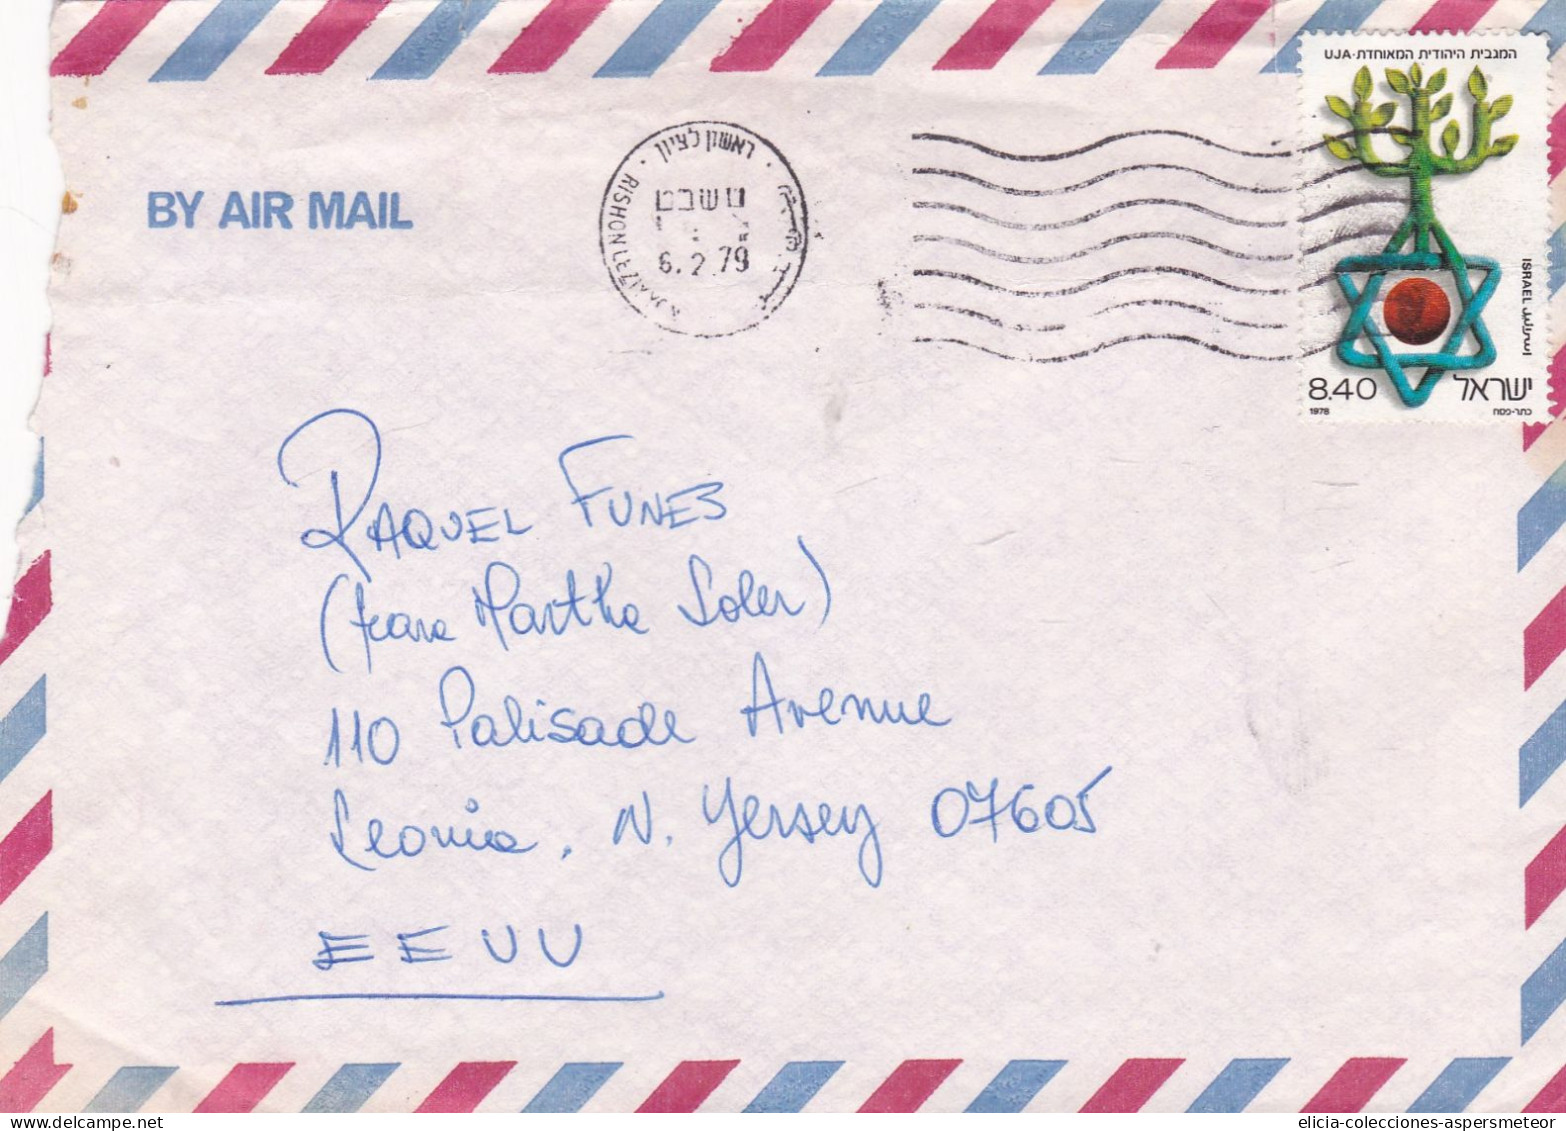 המגבית היהודית המאוחדת·UJA
ISRAEL اسرائيل
8.40 ישראל
1978 כתר-פסח
BY AIR MAIL
ראשון לציון
RISHON
6.2.79
RAQUEL FUNES
(para Martha Soler)
110 Palisade Avenue
Leonia, N. Yersey 07605
EEUU
elicia-colecciones-aspersmeteor